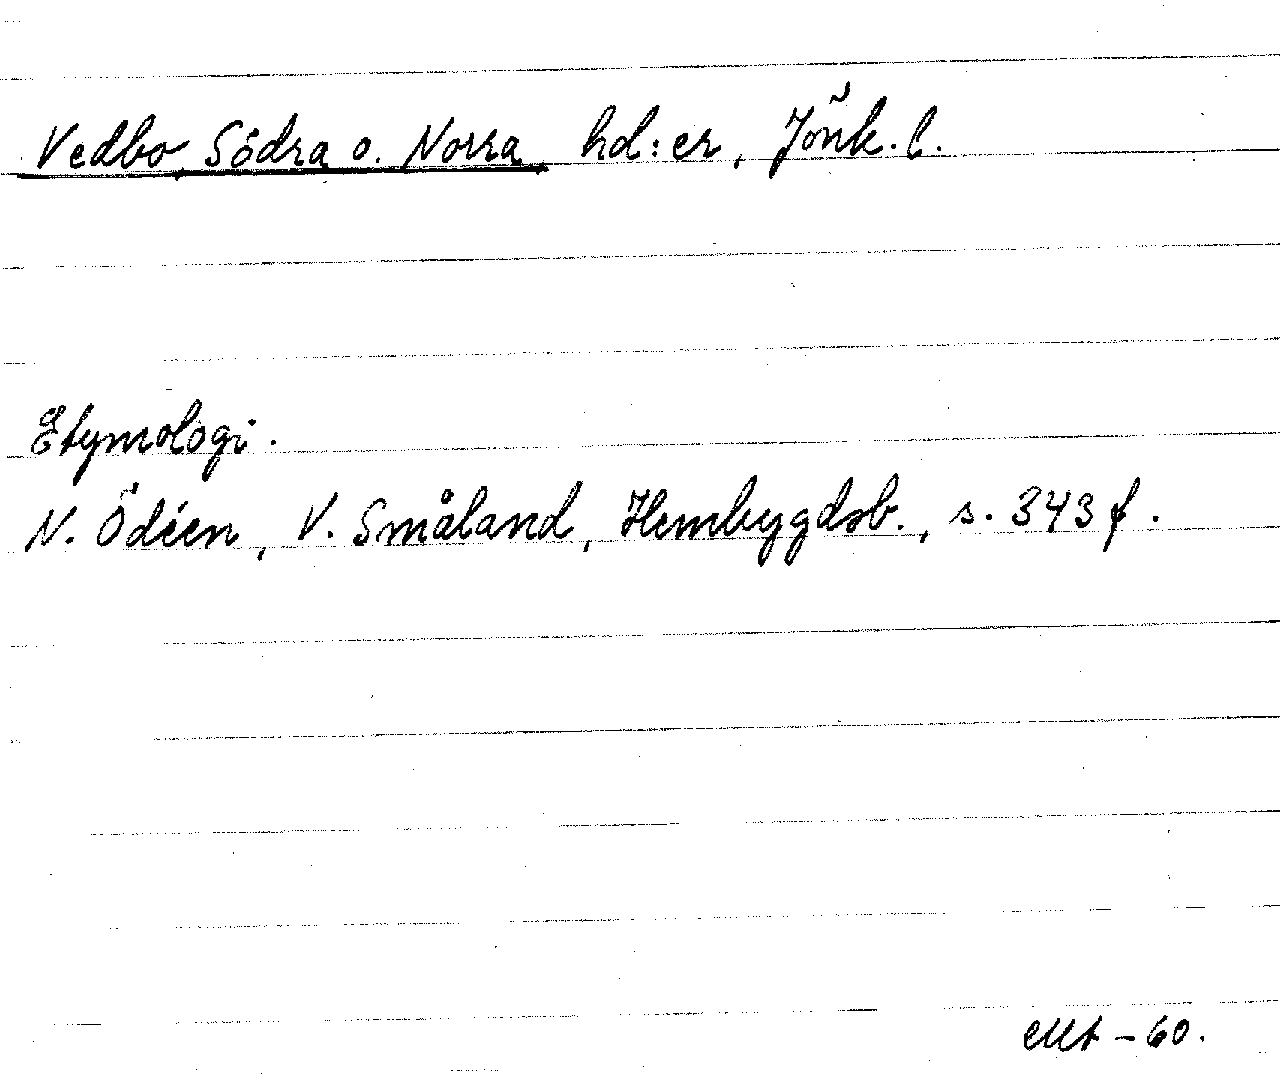 Vedbo, Södra o. Norra, hd:er, Jönk. l.
Etymologi.
N. Ödéen, V. Småland, Hembygdsb., s. 343 f.
-60.